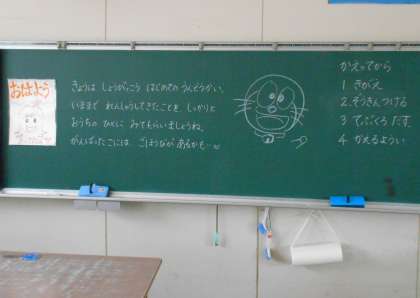 おはよう
きょうは しょうがっこう はじめての うんどうかい。
いままで れんしゅうしてきたことを しっかりと
おうちのひとに みてもらいましょうね。
がんばったこには ごほうびが あるかも…
かえってから
1 きがえ
2 ぞうきんつける
3 てぶくろ だす
4 かえるようい